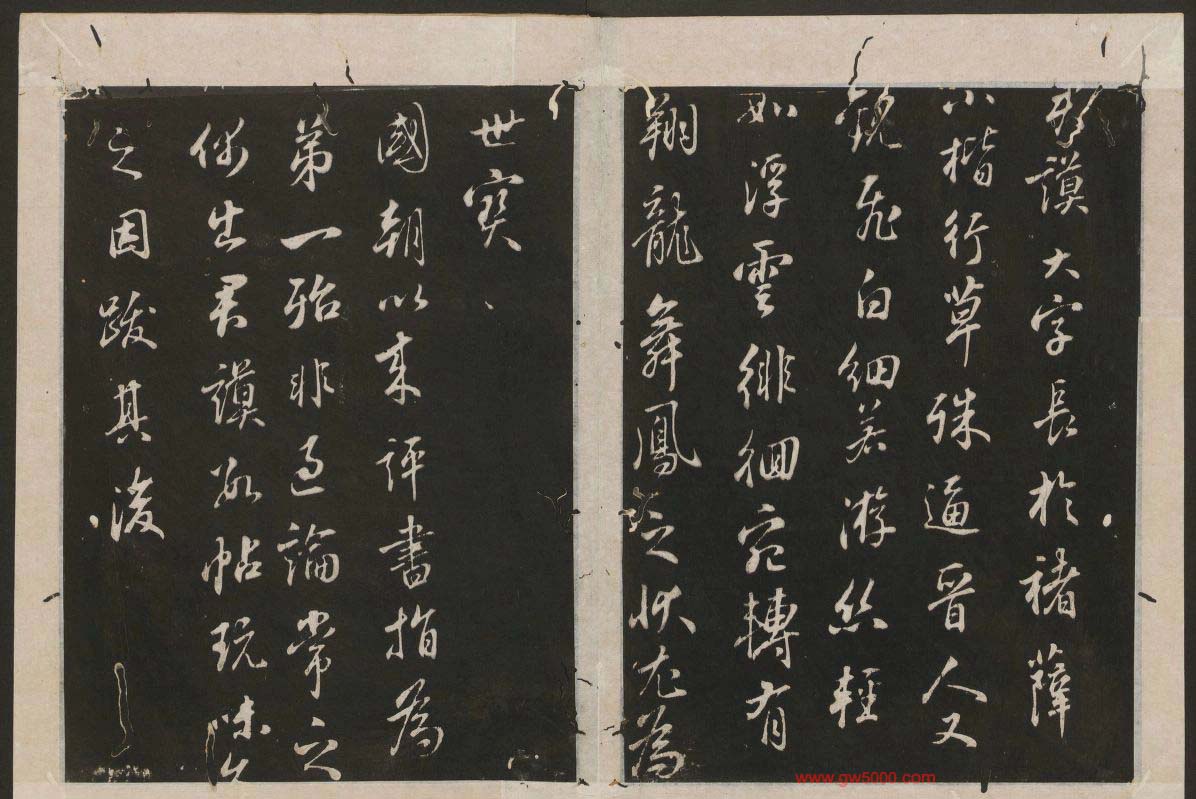 謨大字長於褚薛
小楷行草殊逼晉人又
飛白細若游絲輕
如浮雲徘徊宛轉有
翔龍舞鳳之狀尤為
世寶
國朝以來評書指為
第一殆非過論常之
偶出君謨數帖玩味久
之因跋其後
www.gw5000.com